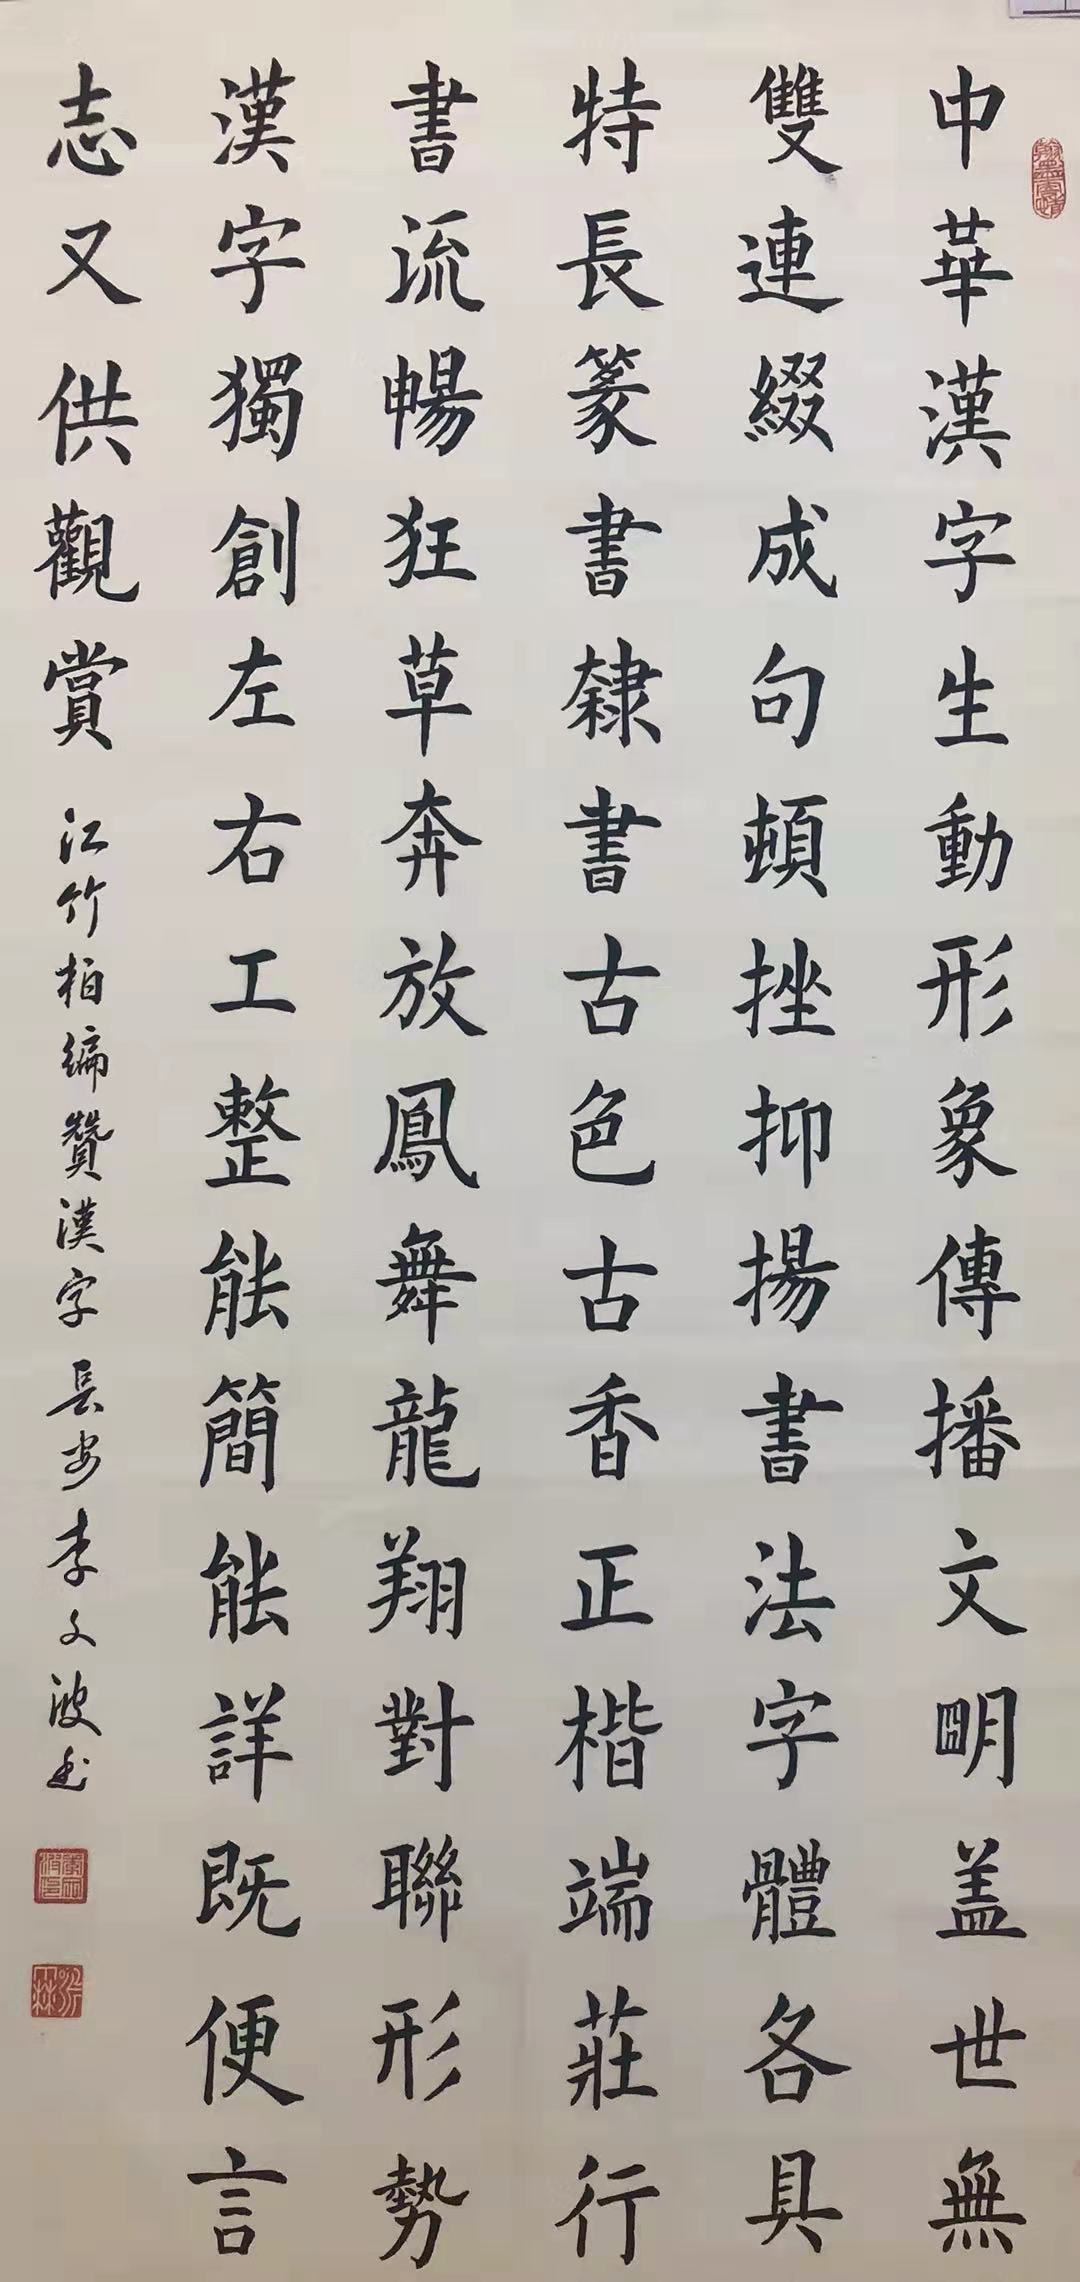 中華漢字生動形象傳播文朙盖世無
雙連綴成句頓挫抑揚書法字體各具
特長篆書隸書古色古香正楷端莊行
書流暢狂草奔放鳳舞龍翔對聯形勢
漢字獨創左右工整能簡能詳既便言
志又供觀賞
江竹柏編贊漢字長安李文波書